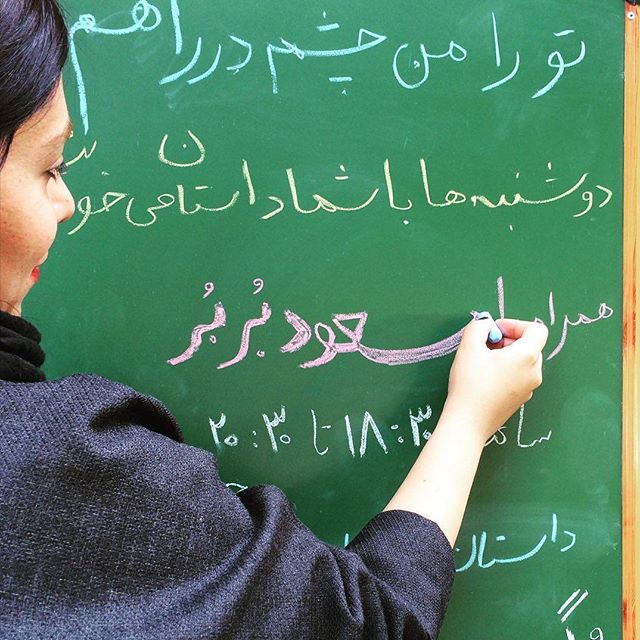 تو را من چشم در راهم
دوشنبه ها با شما داستان می
همراه مسعود بُر بُر
ساعت ۱۸:۳۰ تا ۲۰:۳۰
داستان